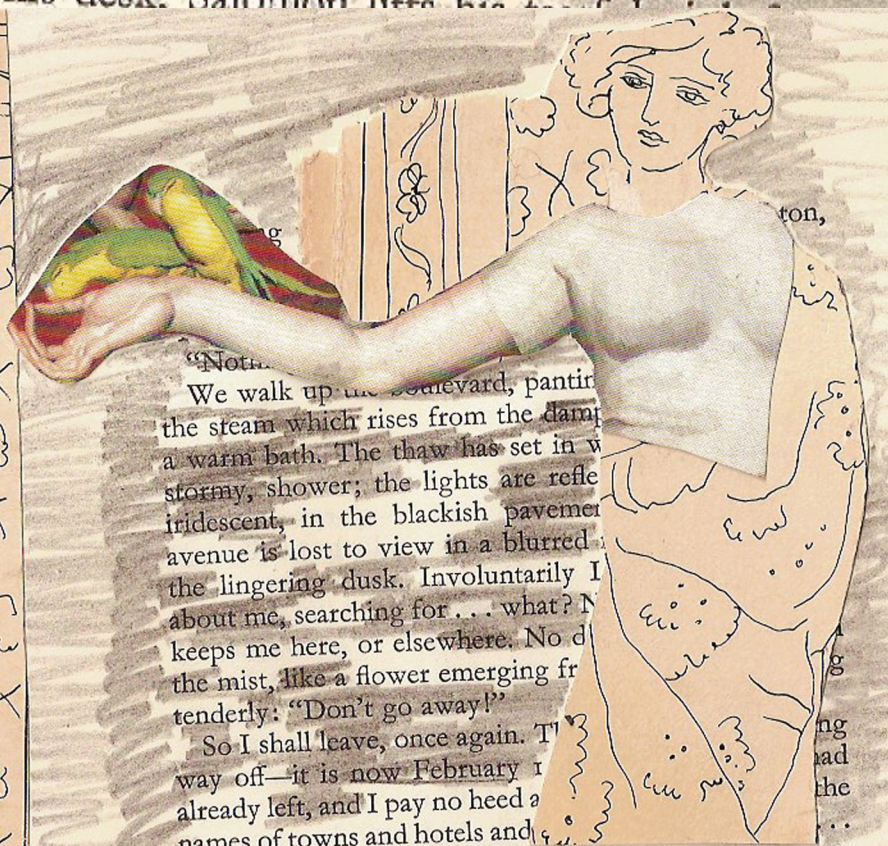 desk, Salomon lifts his
ton,
"Noth
We walk up the boulevard, pantin
the steam which rises from the damp
a warm bath. The thaw has set in w
stormy, shower; the lights are refle
iridescent, in the blackish pavemen
avenue is lost to view in a blurred
the lingering dusk. Involuntarily I
about me, searching for . . . what? N
keeps me here, or elsewhere. No d
the mist, like a flower emerging fr
tenderly: "Don't go away!"
So I shall leave, once again. T
way off—it is now February 1
already left, and I pay no heed a
names of towns and hotels and
g
ng
had
the
. . .